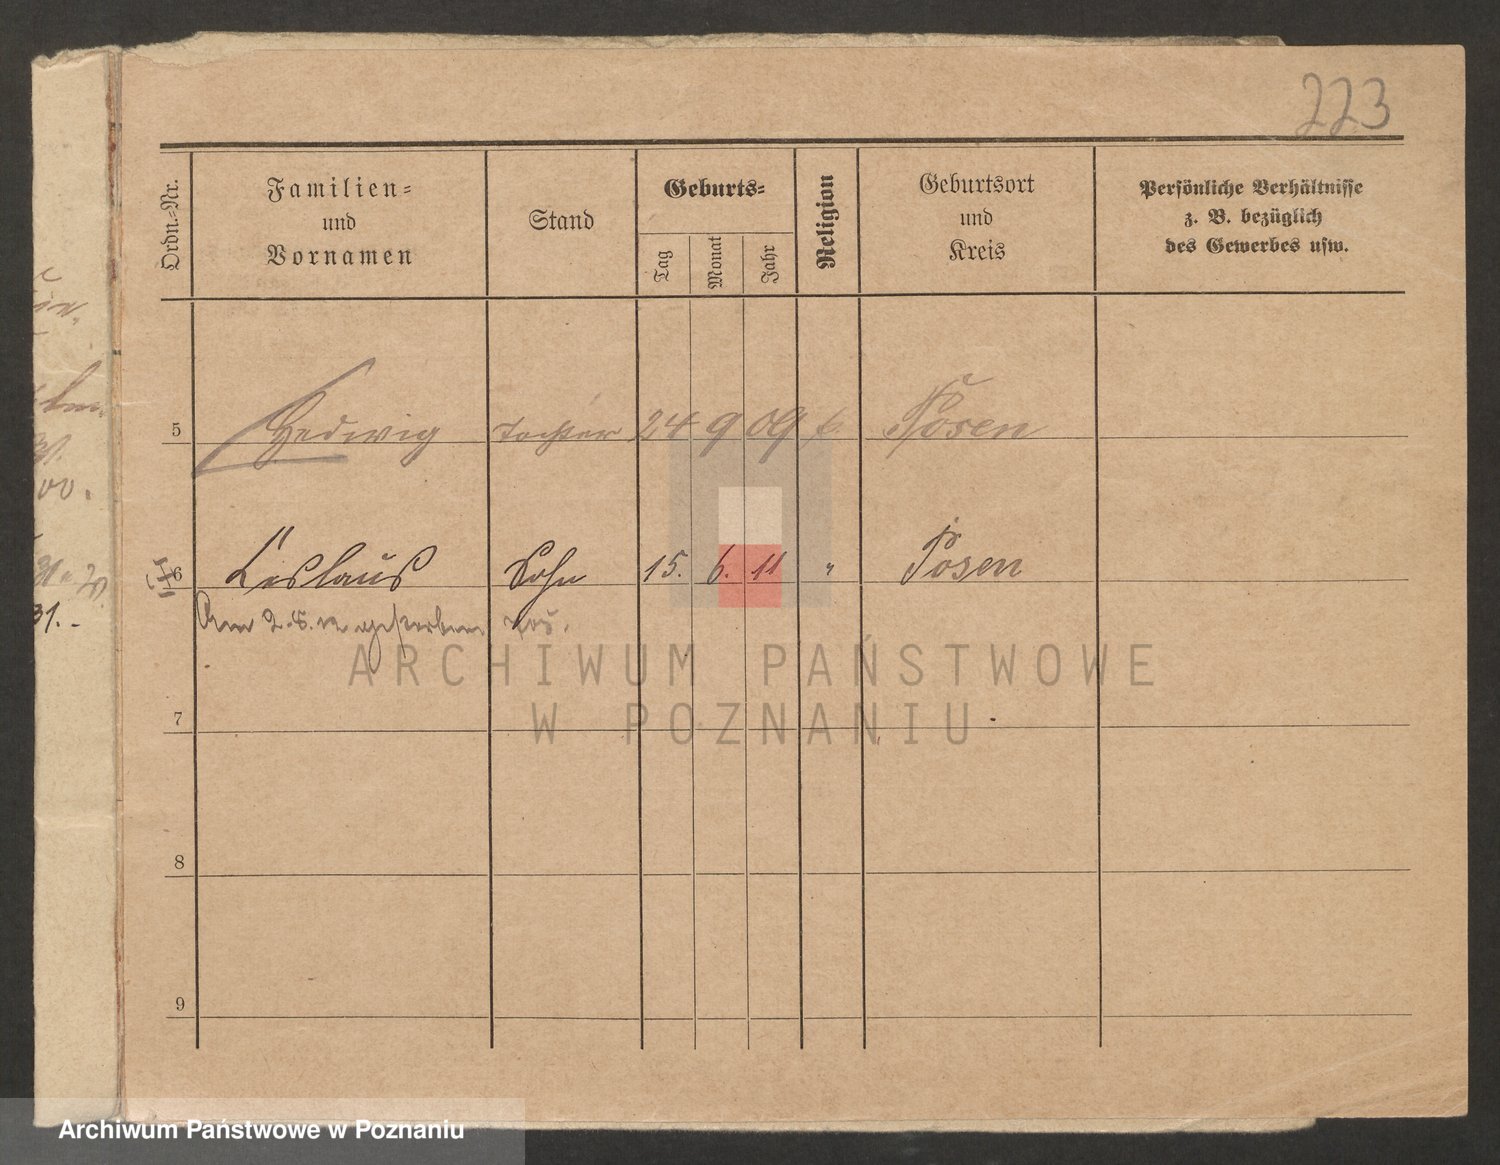 223
Ordn.-Nr.
Familien-
und
Vornamen
Stand
Geburts-
Tag
Monat
Jahr
Religion
Geburtsort
und
Kreis
Persönliche Verhältnisse
z. B. bezüglich
des Gewerbes usw.
5 Hedwig Tochter 24 9 09 k. Posen
6 Leslaus Sohn 15. 6. 11 " Posen
Am 2. 8. 12 gestorben
ARCHIWUM PAŃSTWOWE
W POZNANIU
7
8
9
31.-
Archiwum Państwowe w Poznaniu